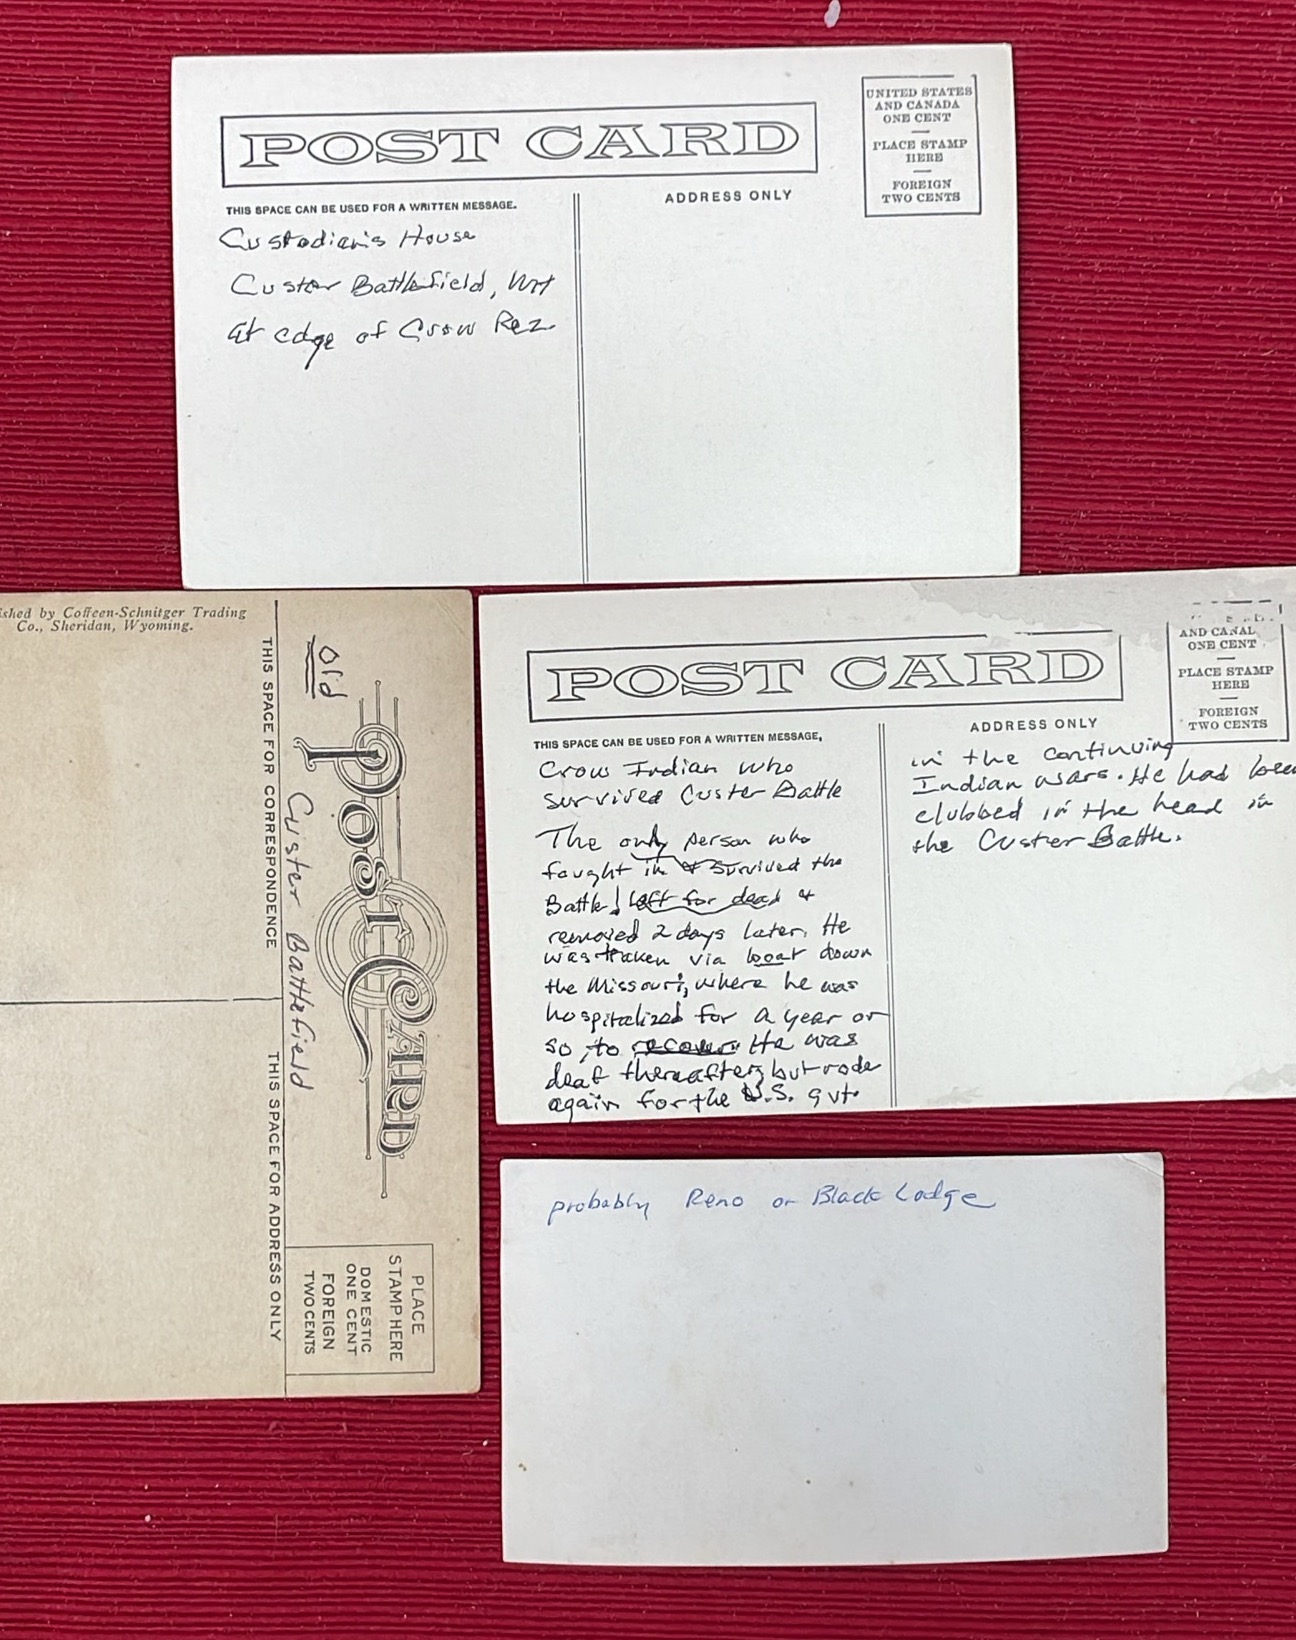 POST CARD
UNITED STATES
AND CANADA
ONE CENT
PLACE STAMP
HERE
FOREIGN
TWO CENTS
THIS SPACE CAN BE USED FOR A WRITTEN MESSAGE.
ADDRESS ONLY
Custodian's House
Custer Battlefield, MT
at edge of Crow Rez
ished by Coffeen-Schnitger Trading
Co., Sheridan, Wyoming.
old
POST CARD
Custer Battlefield
THIS SPACE FOR CORRESPONDENCE
THIS SPACE FOR ADDRESS ONLY
PLACE
STAMP HERE
DOMESTIC
ONE CENT
FOREIGN
TWO CENTS
POST CARD
AND CANAL
ONE CENT
PLACE STAMP
HERE
FOREIGN
TWO CENTS
THIS SPACE CAN BE USED FOR A WRITTEN MESSAGE,
ADDRESS ONLY
Crow Indian who
survived Custer Battle
The only person who
fought in & survived the
Battle! left for dead &
removed 2 days later. He
was taken via boat down
the Missouri, where he was
hospitalized for a year or
so, to recover. He was
deaf thereafter, but rode
again for the U.S. gvt.
in the continuing
Indian wars. He had been
clubbed in the head in
the Custer Battle.
probably Reno or Black Lodge